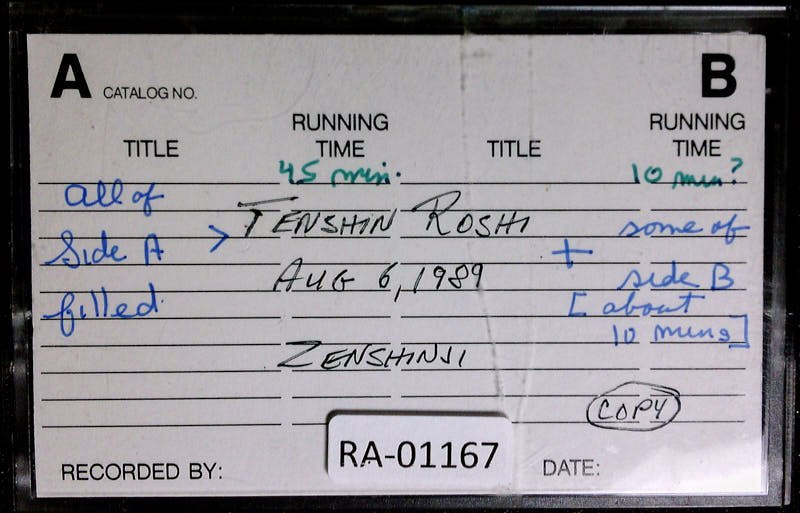 A CATALOG NO. B
TITLE RUNNING TIME TITLE RUNNING TIME
45 min. 10 min?
all of
Side A > TENSHIN ROSHI + some of
filled. AUG 6, 1989 side B
[about
10 mins]
ZENSHINJI
COPY
RECORDED BY: RA-01167 DATE: